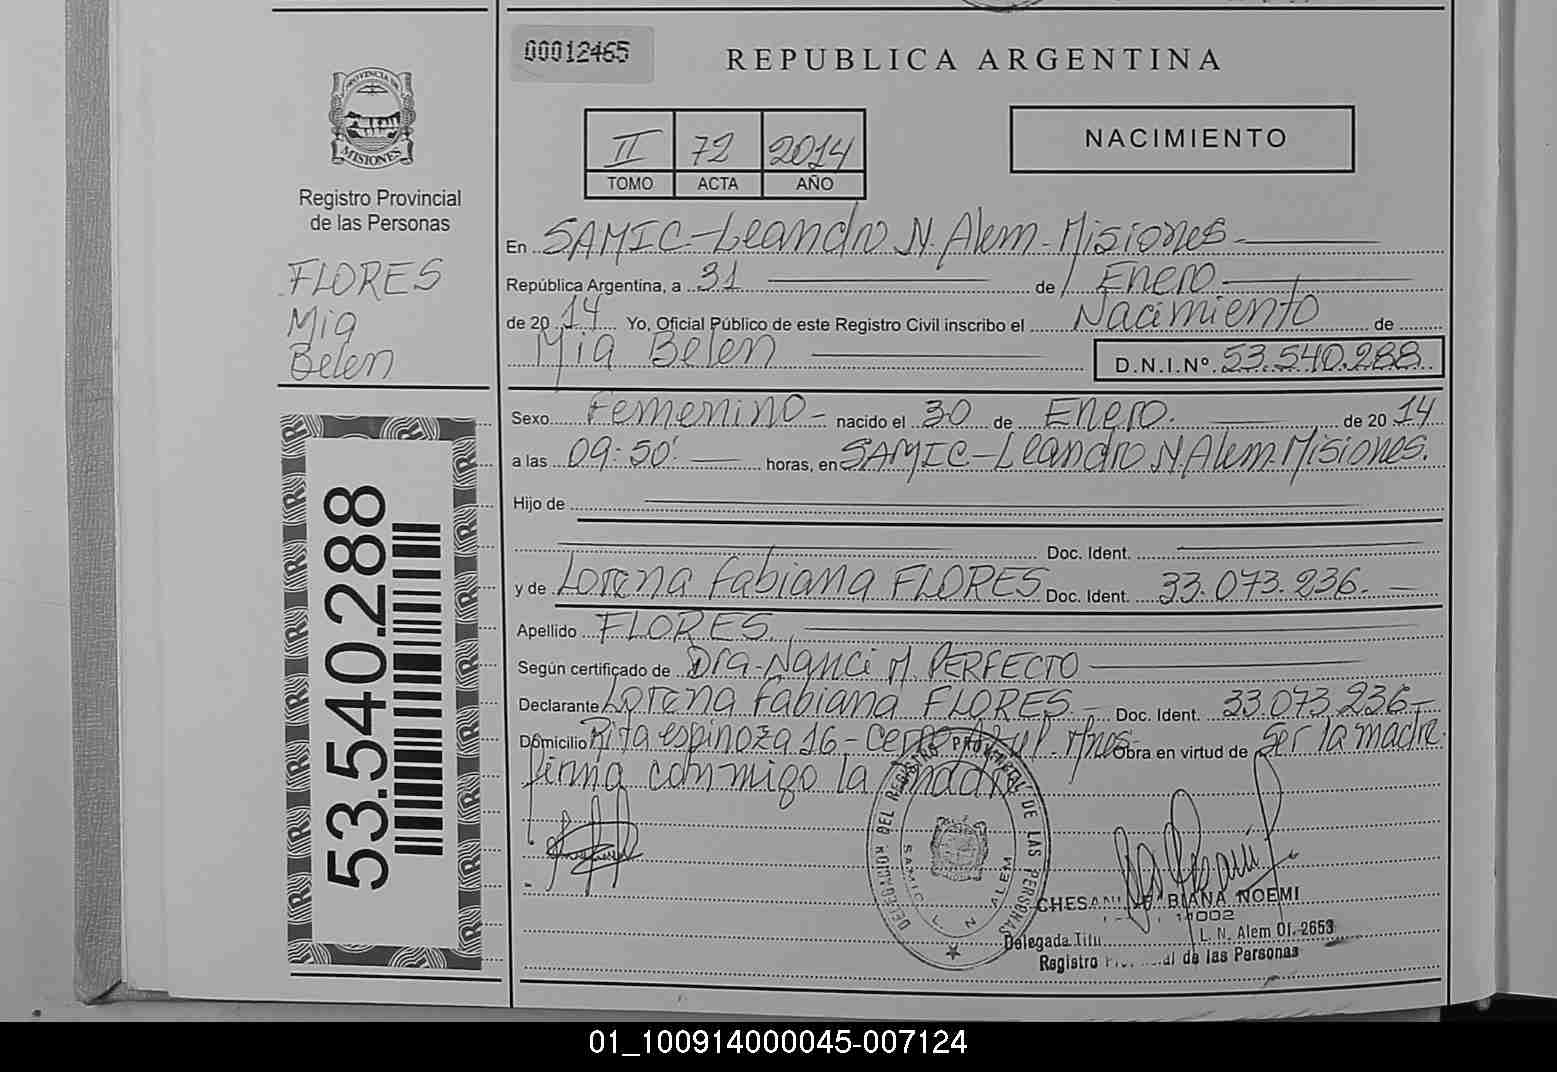 00012465
REPUBLICA ARGENTINA
PROVINCIA DE
MISIONES
Registro Provincial
de las Personas
II 72 2014
TOMO ACTA AÑO
NACIMIENTO
FLORES
Mia
Belen
En SAMIC-Leandro N. Alem-Misiones
República Argentina, a 31 de Enero
de 2014 Yo, Oficial Público de este Registro Civil inscribo el Nacimiento de
Mia Belen D.N.I.Nº. 53.540.288
Sexo Femenino - nacido el 30 de Enero. de 2014
a las 09:50' horas, en SAMIC-Leandro N. Alem-Misiones.
Hijo de
Doc. Ident.
y de Lorena Fabiana FLORES Doc. Ident. 33.073.236.
Apellido FLORES
Según certificado de Dra-Nanci M. PERFECTO
Declarante Lorena Fabiana FLORES - Doc. Ident. 33.073.236-
Domicilio Rita espinoza 16 - Cerro Azul Obra en virtud de Ser la madre.
firma conmigo la madre
53.540.288
DELEGACION DEL REGISTRO PROVINCIAL DE LAS PERSONAS
SAMIC L N ALEM
NOEMI
Delegada
L. N. Alem Of. 2653
Registro de las Personas
01_100914000045-007124